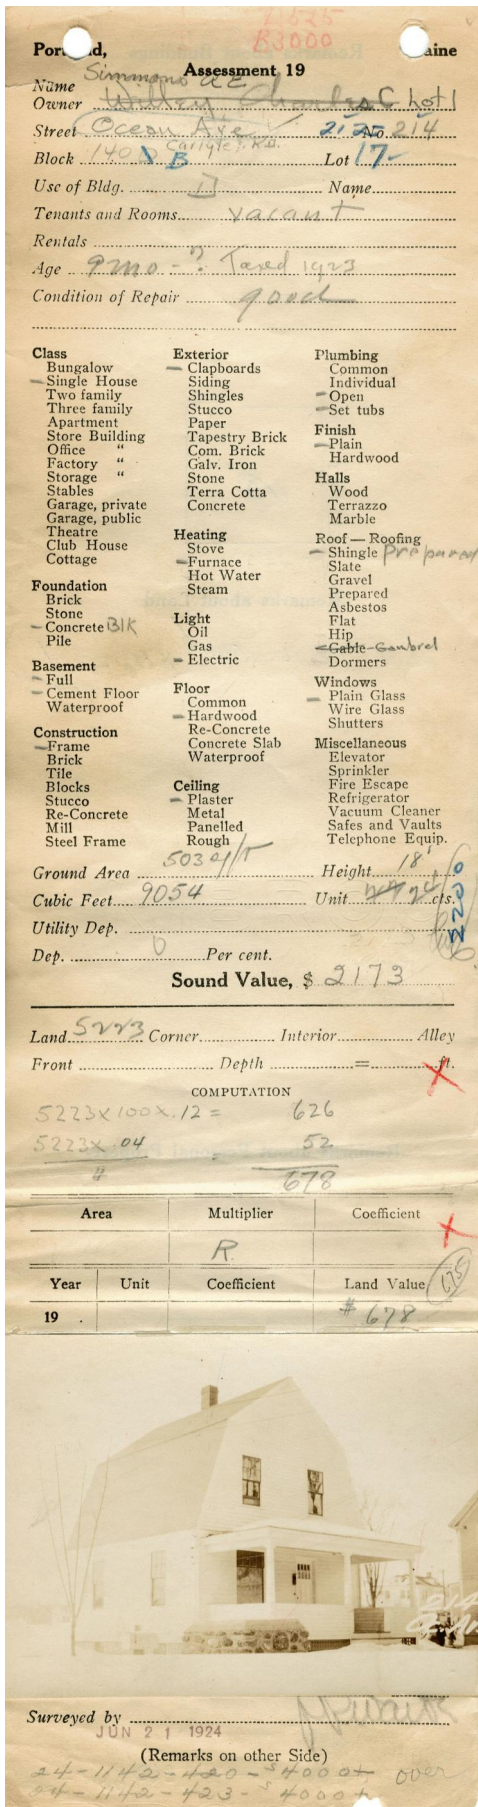 B3000
Portland, Maine
Assessment 19
Simmons A E
Name
Owner Willey Charles C Lot 1
Street Ocean Ave No 214
Carlyle Rd.
Block 140 B Lot 17
Use of Bldg. D Name
Tenants and Rooms vacant
Rentals
Age 9 mo - ? Taxed 1923
Condition of Repair good
Class
Bungalow
Single House
Two family
Three family
Apartment
Store Building
Office "
Factory "
Storage "
Stables
Garage, private
Garage, public
Theatre
Club House
Cottage
Foundation
Brick
Stone
Concrete Blk
Pile
Basement
Full
Cement Floor
Waterproof
Construction
Frame
Brick
Tile
Blocks
Stucco
Re-Concrete
Mill
Steel Frame
Exterior
Clapboards
Siding
Shingles
Stucco
Paper
Tapestry Brick
Com. Brick
Galv. Iron
Stone
Terra Cotta
Concrete
Heating
Stove
Furnace
Hot Water
Steam
Light
Oil
Gas
Electric
Floor
Common
Hardwood
Re-Concrete
Concrete Slab
Waterproof
Ceiling
Plaster
Metal
Panelled
Rough
Plumbing
Common
Individual
Open
Set tubs
Finish
Plain
Hardwood
Halls
Wood
Terrazzo
Marble
Roof — Roofing
Shingle Prepared
Slate
Gravel
Prepared
Asbestos
Flat
Hip
Gable - Gambrel
Dormers
Windows
Plain Glass
Wire Glass
Shutters
Miscellaneous
Elevator
Sprinkler
Fire Escape
Refrigerator
Vacuum Cleaner
Safes and Vaults
Telephone Equip.
Ground Area 503 Height 18'
Cubic Feet 9054 Unit 24 cts.
2200
Utility Dep.
Dep. 0 Per cent.
Sound Value, $ 2173
Land 5223 Corner Interior Alley
Front Depth = ft.
COMPUTATION
5223 x 100 x .12 = 626
5223 x .04 52
678
Area Multiplier Coefficient
R
Year Unit Coefficient Land Value
675
19 . # 678
214
Surveyed by
JUN 21 1924
(Remarks on other Side)
24-1142-420-$4000+ over
24-1142-423-$4000+